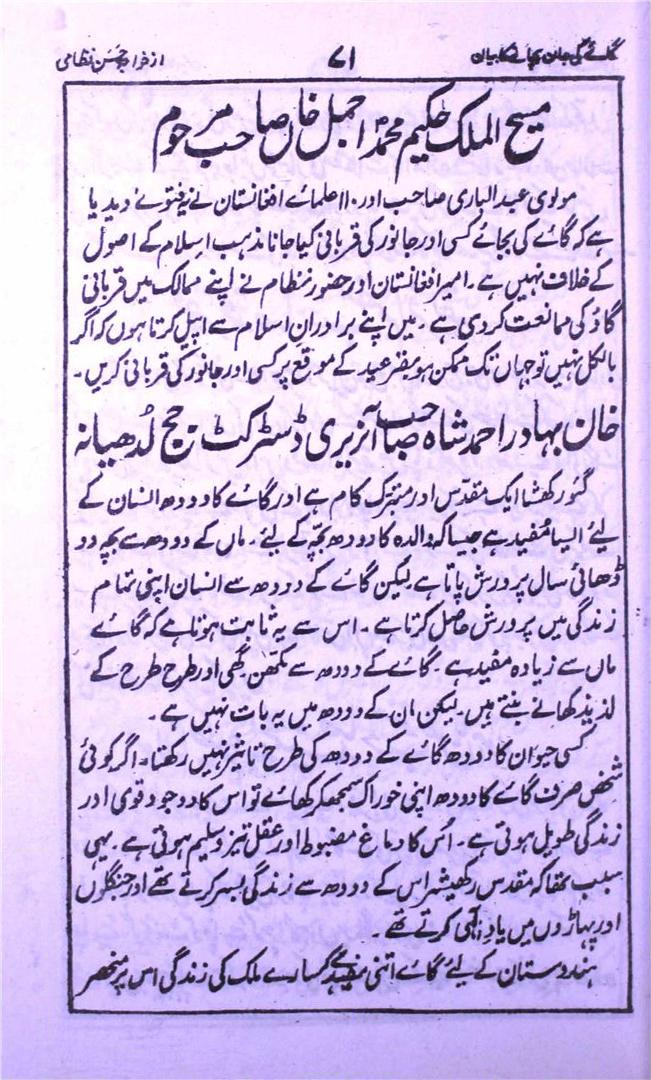 گائے کی جان بچانے کا بیان
۷۱
از خواجہ حسن نظامی
مسیح الملک حکیم محمد اجمل خاں صاحب مرحوم
مولوی عبد الباری صاحب اور ۱۱۰ علمائے افغانستان نے یہ فتوے دیدیا
ہے کہ گائے کی بجائے کسی اور جانور کی قربانی کیا جانا مذہب اسلام کے اصول
کے خلاف نہیں ہے۔ امیر افغانستان اور حضور نظام نے اپنے ممالک میں قربانی
گاؤ کی ممانعت کر دی ہے۔ میں اپنے برادران اسلام سے اپیل کرتا ہوں کہ اگر
بالکل نہیں تو جہاں تک ممکن ہو بقر عید کے موقع پر کسی اور جانور کی قربانی کریں۔
خان بہادر احمد شاہ صاحب آنریری ڈسٹرکٹ جج لُدھیانہ
گئورکھشا ایک مقدّس اور متبرک کام ہے اور گائے کا دودھ انسان کے
لیئے ایسا مُفید ہے جیسا کہ والدہ کا دودھ بچّہ کے لئے۔ ماں کے دودھ سے بچہ دو
ڈھائی سال پرورش پاتا ہے لیکن گائے کے دودھ سے انسان اپنی تمام
زندگی میں پرورش حاصل کرتا ہے۔ اس سے یہ ثابت ہوتا ہے کہ گائے
ماں سے زیادہ مفید ہے۔ گائے کے دودھ سے مکھن گھی اور طرح طرح کے
لذیذ کھانے بنتے ہیں۔ لیکن ان کے دودھ میں یہ بات نہیں ہے۔
کسی حیوان کا دودھ گائے کے دودھ کی طرح تاثیر نہیں رکھتا۔ اگر کوئی
شخص صرف گائے کا دودھ اپنی خوراک سمجھ کر کھائے تو اس کا وجود قوی اور
زندگی طویل ہوتی ہے۔ اُس کا دماغ مضبوط اور عقل تیز و سلیم ہوتی ہے۔ یہی
سبب تھا کہ مقدس رکھیشر اس کے دودھ سے زندگی بسر کرتے تھے اور جنگلوں
اور پہاڑوں میں یادِ الٰہی کرتے تھے۔
ہندوستان کے لیئے گائے اتنی مفید ہے کہ سارے ملک کی زندگی اس پر منحصر